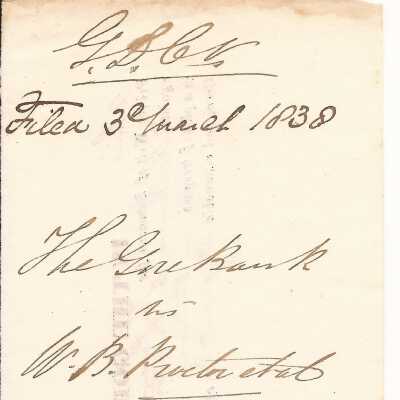 G.D.C.
Filed 3d March 1838
The Gore Bank
vs
W. B. Proctor et al